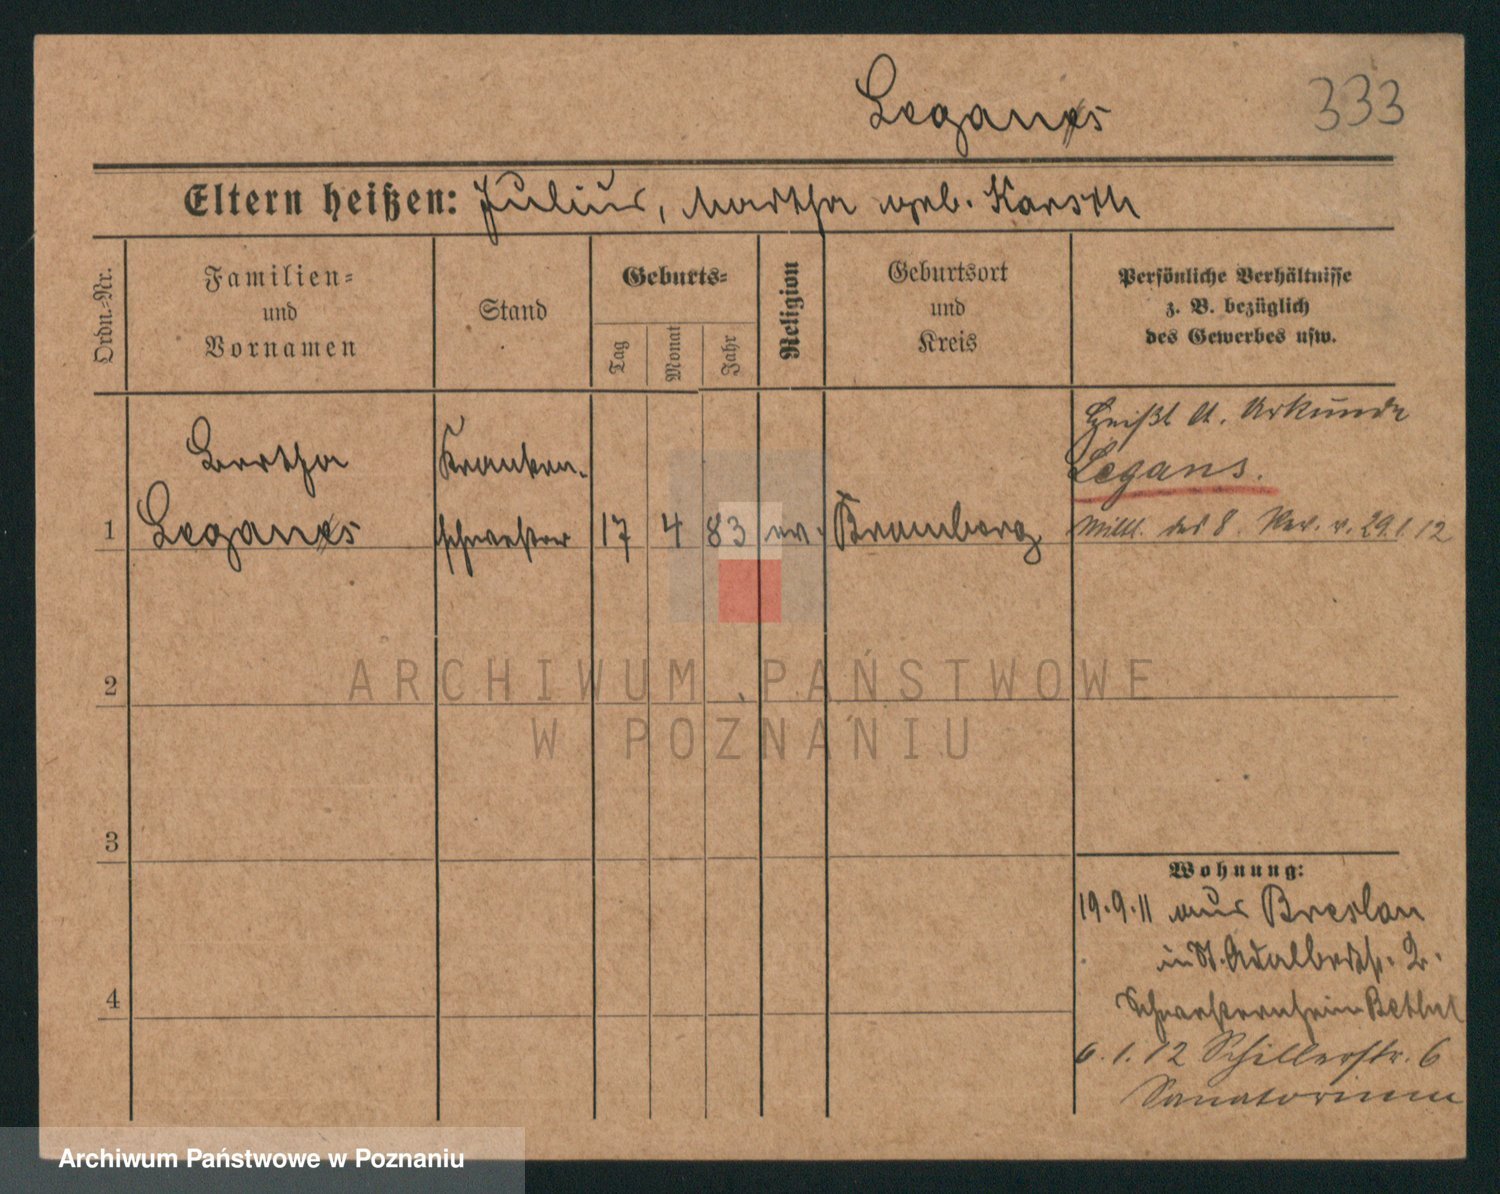 Legans
333
Eltern heißen: Julius, Martha geb. Karsch
Ordn.-Nr.
Familien-
und
Vornamen
Stand
Geburts-
Tag
Monat
Jahr
Religion
Geburtsort
und
Kreis
Persönliche Verhältnisse
z. B. bezüglich
des Gewerbes usw.
1
Bertha
Legans
Kranken-
schwester
17 4 83 ev. Bromberg
Heißt lt. Urkunde
Legans.
Mittl. des 8. Rev. v. 29.1.12
2
3
4
Wohnung:
19.9.11 aus Breslau
in St. Adalbertstr. 2.
Schwesternheim Bethel
6.1.12 Schillerstr. 6
Sanatorium
ARCHIWUM PAŃSTWOWE
W POZNANIU
Archiwum Państwowe w Poznaniu